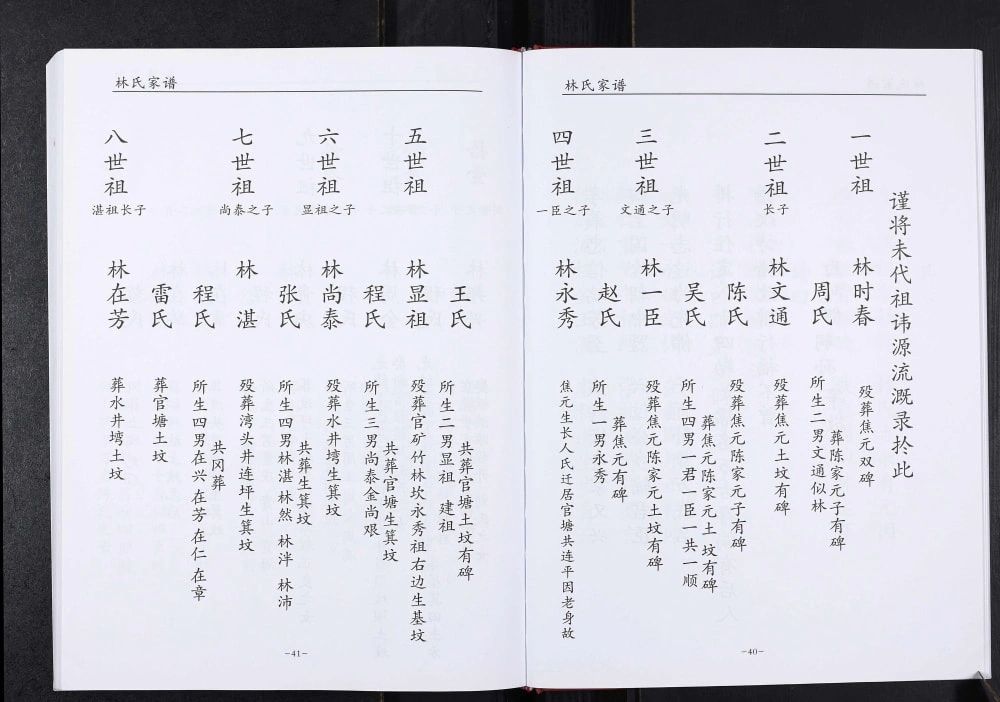 林氏家谱
谨将未代祖讳源流溉录扵此
一世祖
林时春
殁葬焦元双碑
周氏
葬陈家元子有碑
所生二男文通似林
二世祖
长子
林文通
殁葬焦元土坟有碑
陈氏
殁葬焦元陈家元子有碑
吴氏
葬焦元陈家元土坟有碑
所生四男一君一臣一共一顺
三世祖
文通之子
林一臣
殁葬焦元陈家元土坟有碑
赵氏
葬焦元有碑
所生一男永秀
四世祖
一臣之子
林永秀
焦元生长人氏迁居官塘共连平因老身故
-40-
林氏家谱
王氏
共葬官塘土坟有碑
所生二男显祖 建祖
五世祖
林显祖
殁葬官矿竹林坎永秀祖右边生基坟
程氏
共葬官塘生箕坟
所生三男尚泰金尚艰
六世祖
显祖之子
林尚泰
殁葬水井塆生箕坟
张氏
共葬生箕坟
所生四男林湛 林然 林泮 林沛
七世祖
尚泰之子
林湛
殁葬湾头井连坪生箕坟
程氏
共冈葬
所生四男在兴 在芳 在仁 在章
雷氏
葬官塘土坟
八世祖
湛祖长子
林在芳
葬水井塆土坟
-41-